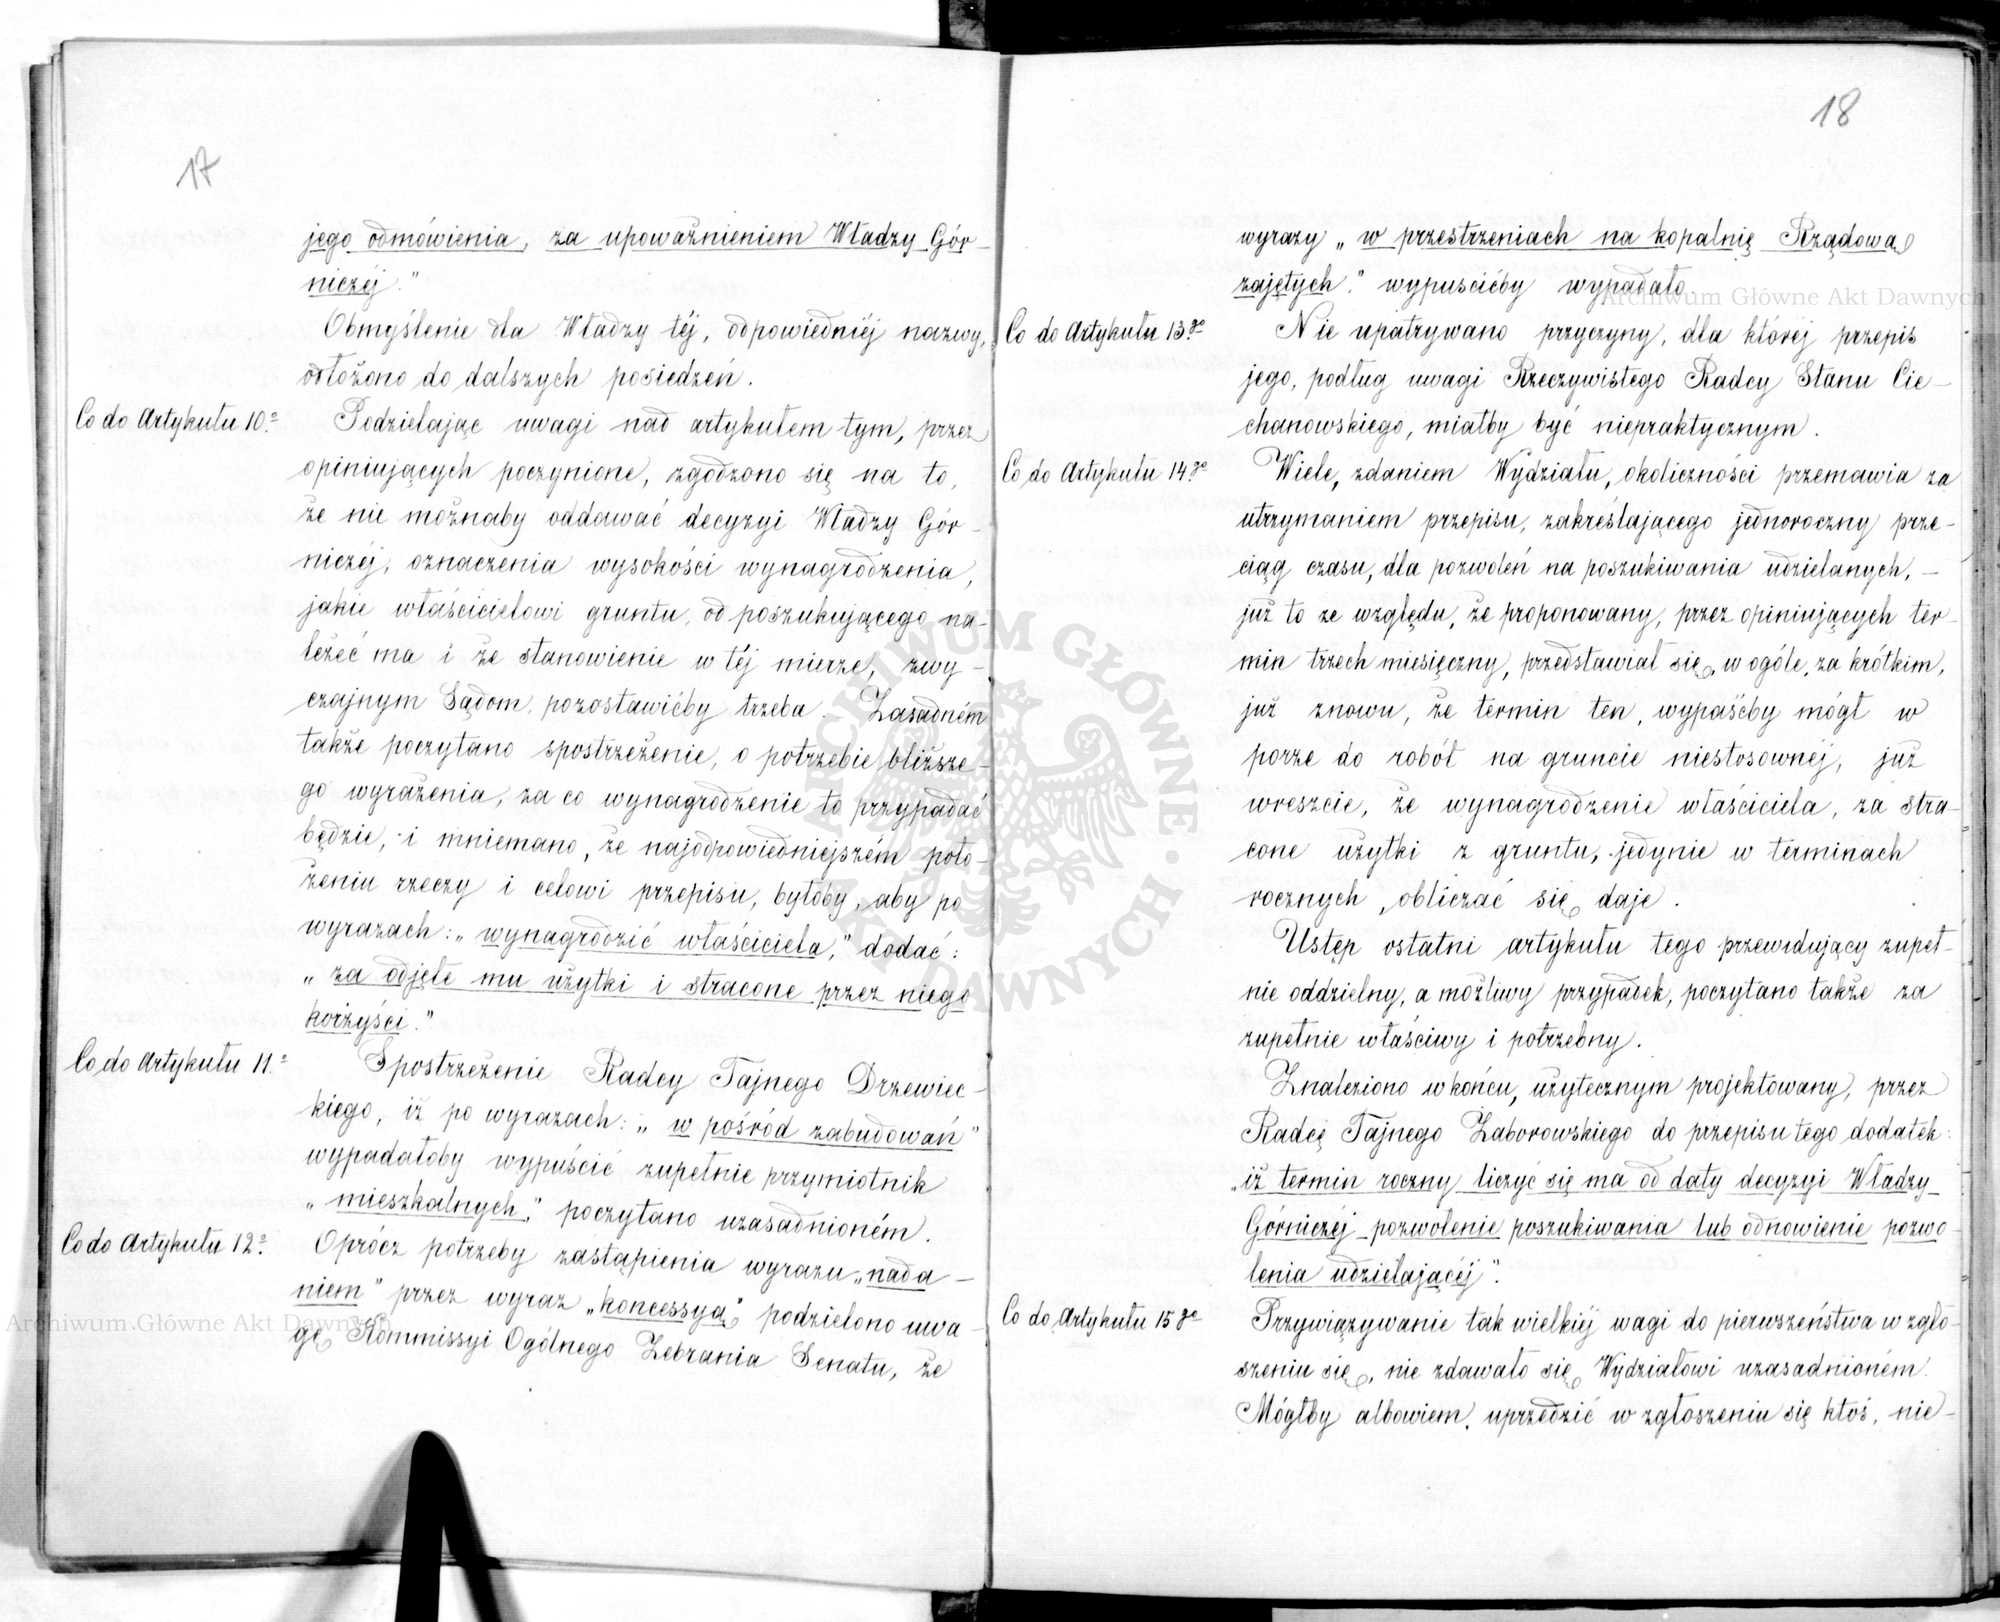 17
jego odmówienia, za upoważnieniem Władzy Gór-
niczéj."
Obmyślenie dla Władzy téj, odpowiedniéj nazwy,
odłożono do dalszych posiedzeń.
Co do Artykułu 10.º
Podzielając uwagi nad artykułem tym, przez
opiniujących poczynione, zgodzono się na to,
że nie możnaby oddawać decyzyi Władzy Gór-
niczéj, oznaczenia wysokości wynagrodzenia,
jakie właścicielowi gruntu, od poszukującego na-
leżeć ma i że stanowienie w téj mierze, zwy-
czajnym Sądom, pozostawićby trzeba. Zasadném
także poczytano spostrzeżenie, o potrzebie bliższe-
go wyrażenia, za co wynagrodzenie to przypadać
będzie, i mniemano, że najodpowiedniejszém poło-
żeniu rzeczy i celowi przepisu, byłoby, aby po
wyrazach: „wynagrodzić właściciela," dodać:
„za odjęte mu użytki i stracone przez niego
korzyści."
Co do Artykułu 11.º
Spostrzeżenie Radcy Tajnego Drzewiec-
kiego, iż po wyrazach: „w pośród zabudowań"
wypadałoby wypuścić zupełnie przymiotnik
„mieszkalnych," poczytano uzasadnioném.
Co do Artykułu 12.º
Oprócz potrzeby zastąpienia wyrazu „nada-
niem" przez wyraz „koncessyą" podzielono uwa-
gę Kommissyi Ogólnego Zebrania Senatu, że
18
wyrazy „w przestrzeniach na kopalnię Rządową
zajętych." wypuścićby wypadało.
Co do Artykułu 13.go
Nie upatrywano przyczyny, dla któréj przepis
jego, podług uwagi Rzeczywistego Radcy Stanu Cie-
chanowskiego, miałby być niepraktycznym.
Co do Artykułu 14.go
Wiele, zdaniem Wydziału, okoliczności przemawia za
utrzymaniem przepisu, zakréślającego jednoroczny prze-
ciąg czasu, dla pozwoleń na poszukiwania udzielanych, -
już to ze względu, że proponowany, przez opiniujących ter-
min trzech miesięczny, przedstawiał się, w ogóle, za krótkim,
już znowu, że termin ten, wypaśćby mógł w
porze do robót na gruncie niestosownéj, już
wreszcie, że wynagrodzenie właściciela, za stra-
cone użytki z gruntu, jedynie w terminach
rocznych, obliczać się daje.
Ustęp ostatni artykułu tego przewidujący zupeł-
nie oddzielny, a możliwy przypadek, poczytano także za
zupełnie właściwy i potrzebny.
Znaleziono w końcu, użytecznym projektowany, przez
Radcę Tajnego Zaborowskiego do przepisu tego dodatek:
„iż termin roczny liczyć się ma od daty decyzyi Władzy
Górniczéj pozwolenie poszukiwania lub odnowienie pozwo-
lenia udzielającéj".
Co do Artykułu 15go
Przywiązywanie tak wielkiéj wagi do pierwszeństwa w zgło-
szeniu się, nie zdawało się Wydziałowi uzasadnioném.
Mógłby albowiem, uprzedzić w zgłoszeniu się ktoś, nie-
Archiwum Główne Akt Dawnych
Archiwum Główne Akt Dawnych
ARCHIWUM GŁÓWNE · AKT DAWNYCH ·